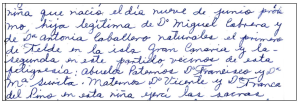 niña que nació el día nueve de junio próxi
mo, hija legítima de Dn Miguel Cabrera y
de Dª Antonia Caballero naturales el primero
de Telde en la isla Gran Canaria y la
segunda en este partido vecinos de esta
feligresía: Abuelos Paternos Dn Francisco y Dª
Mª Sixta. Maternos Dn Vicente y Dª Franca
del Pino en esta niña ejercí las sacras